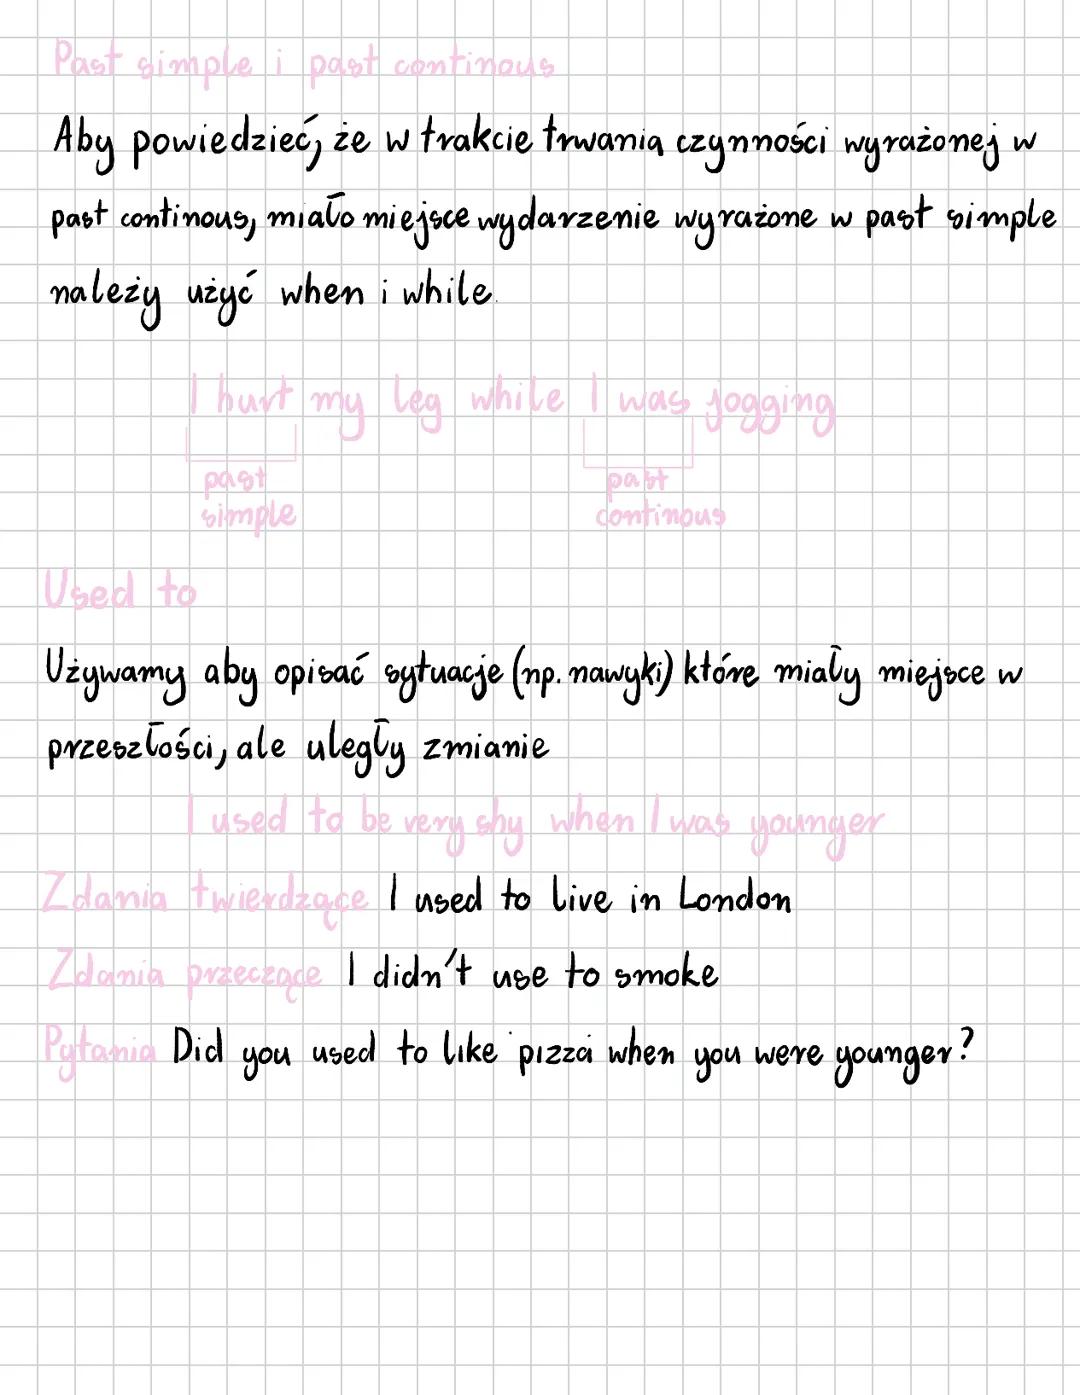 Past simple i past continous
Aby powiedzieć, że w trakcie trwania czynności wyrażonej w
past continous, miało miejsce wydarzenie wyrażone w past simple
należy użyć when i while.
I hurt my leg while I was jogging
past simple
past continous
Used to
Używamy aby opisać sytuacje (np. nawyki) które miały miejsce w
przeszłości, ale uległy zmianie
I used to be very shy when I was younger
Zdania twierdzące I used to live in London
Zdania przeczące I didn't use to smoke
Pytania Did you used to like pizza when you were younger?